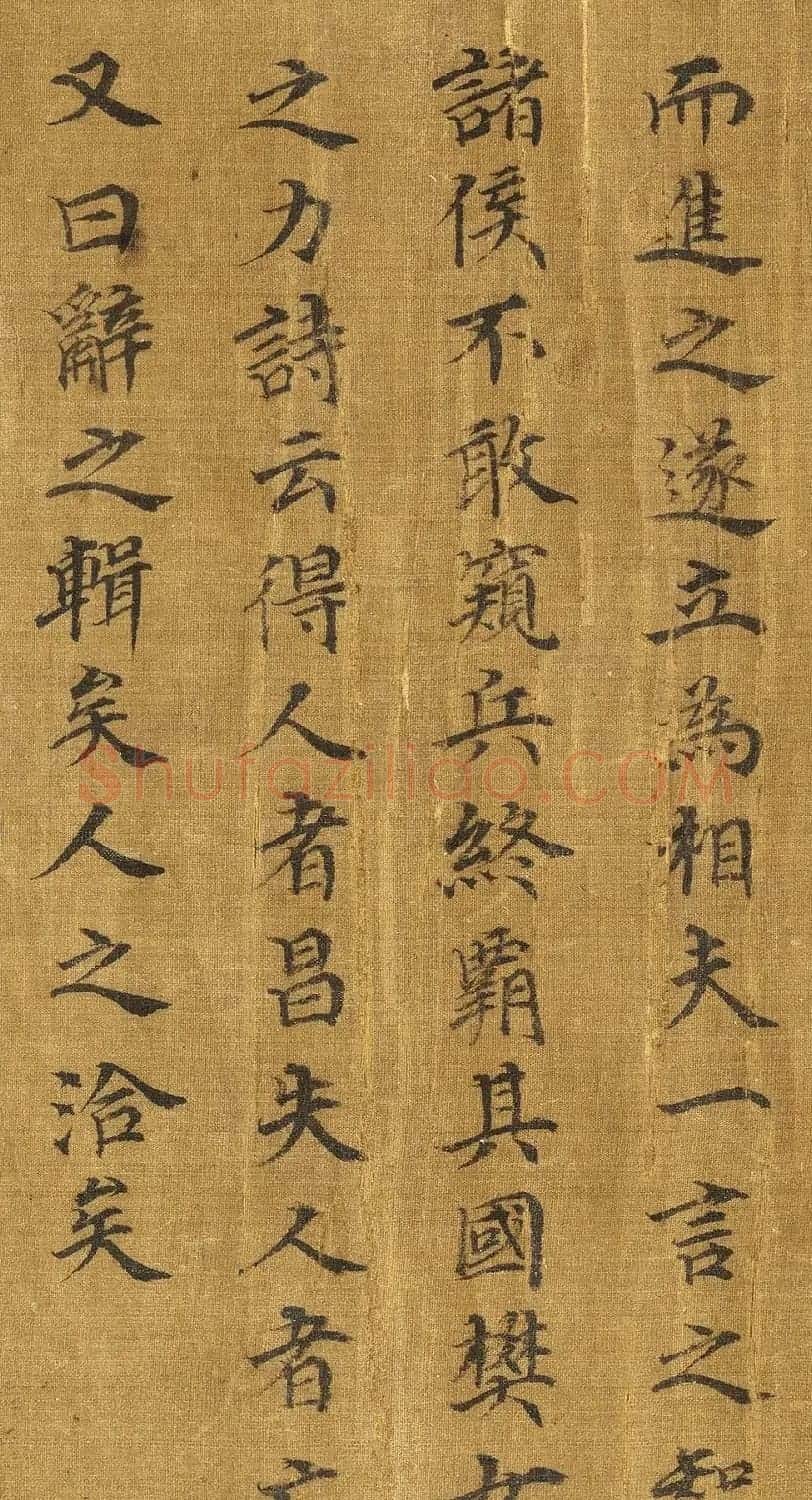 而進之遂立為相夫一言之知
諸侯不敢窺兵終霸其國樊女
之力詩云得人者昌失人者亡
又曰辭之輯矣人之洽矣
shufaziliao.COM